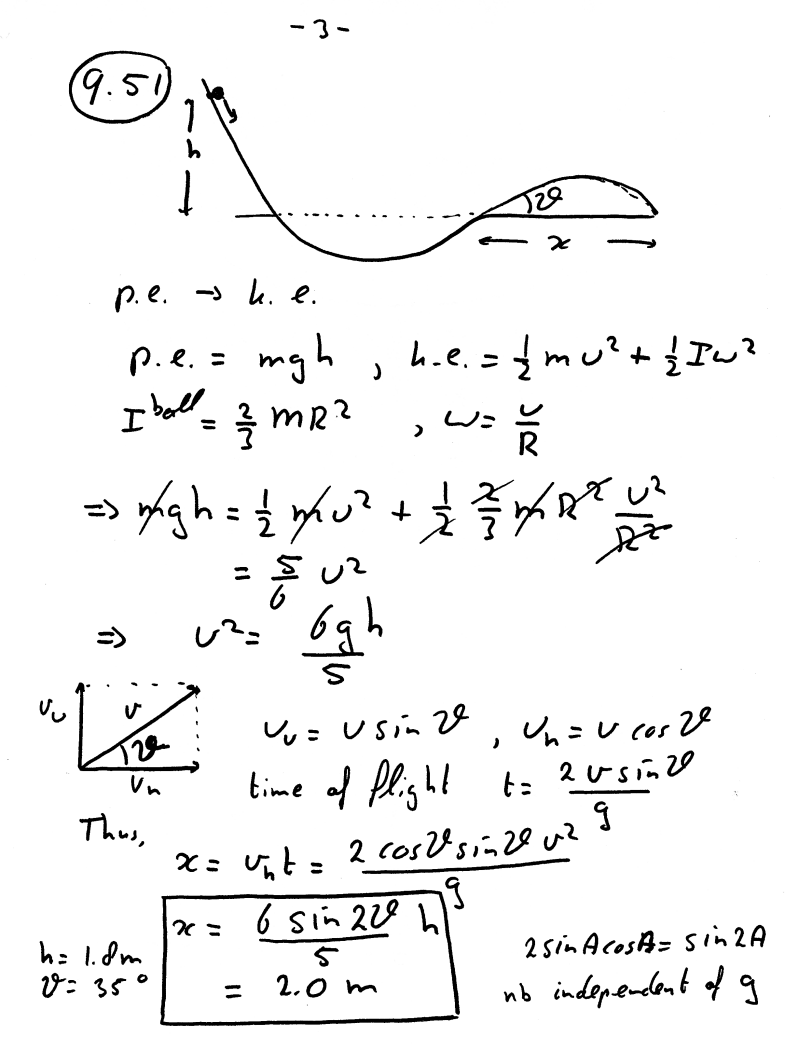 -3-
9.51
h
ϑ
x
p.e. → k.e.
p.e. = mgh , k.e. = 1/2 mv² + 1/2 Iω²
I^ball = 2/3 mR² , ω = v/R
⇒ mgh = 1/2 mv² + 1/2 2/3 mR² v²/R²
= 5/6 v²
⇒ v² = 6gh/5
v_v v ϑ v_h
v_v = v sin ϑ , v_h = v cos ϑ
time of flight t = 2 v sin ϑ / g
Thus,
x = v_h t = 2 cos ϑ sin ϑ v² / g
x = 6 sin 2ϑ / 5 h
= 2.0 m
h = 1.8 m
ϑ = 35°
2 sin A cos A = sin 2A
nb independent of g